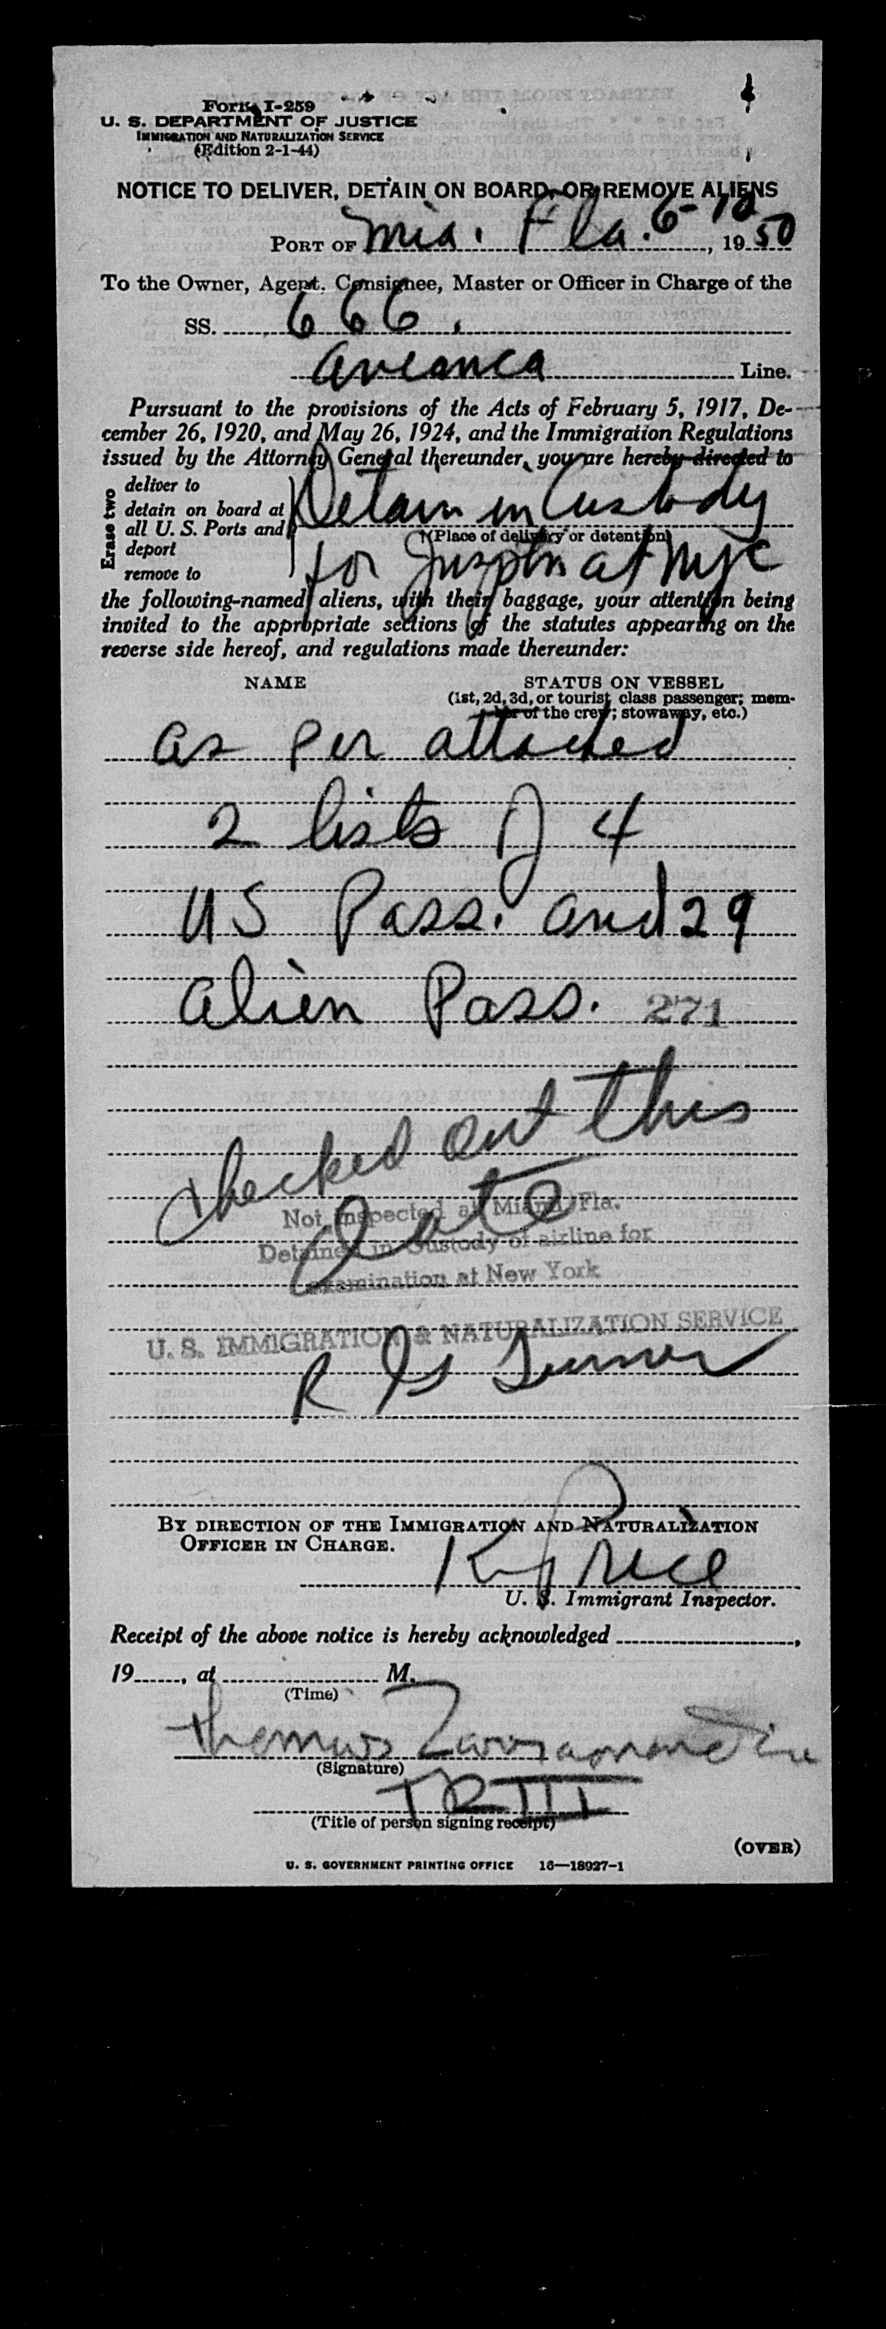 Form I-259
U. S. DEPARTMENT OF JUSTICE
IMMIGRATION AND NATURALIZATION SERVICE
(Edition 2-1-44)
NOTICE TO DELIVER, DETAIN ON BOARD, OR REMOVE ALIENS
PORT OF Mia. Fla. 6-10, 1950
To the Owner, Agent, Consignee, Master or Officer in Charge of the
SS. 666.
Avianca Line.
Pursuant to the provisions of the Acts of February 5, 1917, De-
cember 26, 1920, and May 26, 1924, and the Immigration Regulations
issued by the Attorney General thereunder, you are hereby directed to
Erase two
deliver to
detain on board at
all U. S. Ports and
deport
remove to
Detain in Custody
(Place of delivery or detention)
for Insptn at NYC
the following-named aliens, with their baggage, your attention being
invited to the appropriate sections of the statutes appearing on the
reverse side hereof, and regulations made thereunder:
NAME STATUS ON VESSEL
(1st, 2d, 3d, or tourist class passenger; mem-
ber of the crew; stowaway, etc.)
as per attached
2 lists of 4
US Pass. and 29
alien Pass. 271
checked out this
date
Not inspected at Miami, Fla.
Detained in Custody of airline for
examination at New York
U. S. IMMIGRATION & NATURALIZATION SERVICE
R Turner
BY DIRECTION OF THE IMMIGRATION AND NATURALIZATION
OFFICER IN CHARGE.
Price
U. S. Immigrant Inspector.
Receipt of the above notice is hereby acknowledged ,
19 , at M.
(Time)
Thomas
(Signature)
TR III
(Title of person signing receipt)
(OVER)
U. S. GOVERNMENT PRINTING OFFICE 16—18927-1